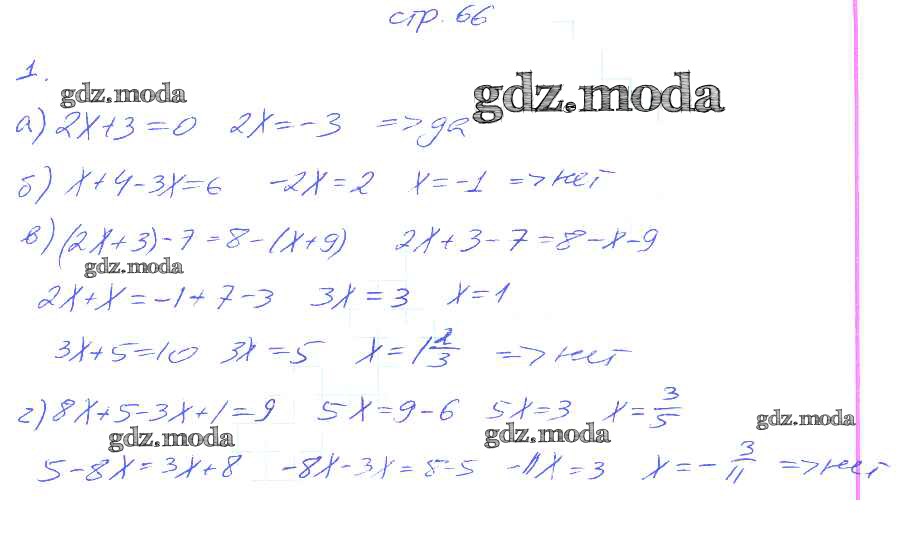 стр. 66
1.
gdz.moda
gdz.moda
а) 2x+3=0 2x=-3 => да
б) x+4-3x=6 -2x=2 x=-1 => нет
в) (2x+3)-7=8-(x+9) 2x+3-7=8-x-9
gdz.moda
2x+x=-1+7-3 3x=3 x=1
3x+5=10 3x=5 x=1 2/3 => нет
г) 8x+5-3x+1=9 5x=9-6 5x=3 x=3/5
gdz.moda gdz.moda gdz.moda
5-8x=3x+8 -8x-3x=8-5 -11x=3 x=-3/11 => нет